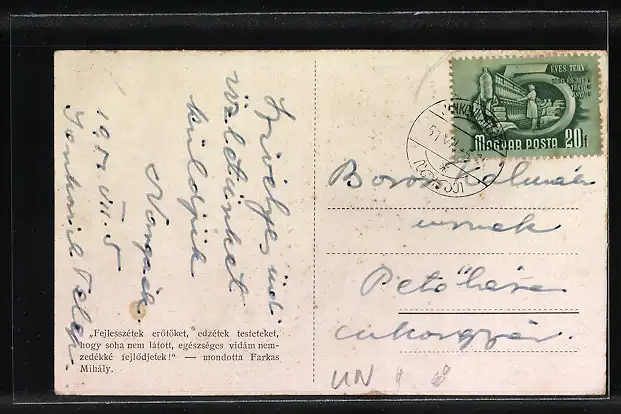 Szívélyes üd-
vözletünket
küldjük
1951. VII. 5
„Fejlesszétek erőtöket, edzétek testeteket,
hogy soha nem látott, egészséges vidám nem-
zedékké fejlődjetek!" — mondotta Farkas
Mihály.
5 ÉVES TERV
MAGYAR POSTA 20f
Boros Kálmán
urnak
Petőháza
cukorgyár.
UN